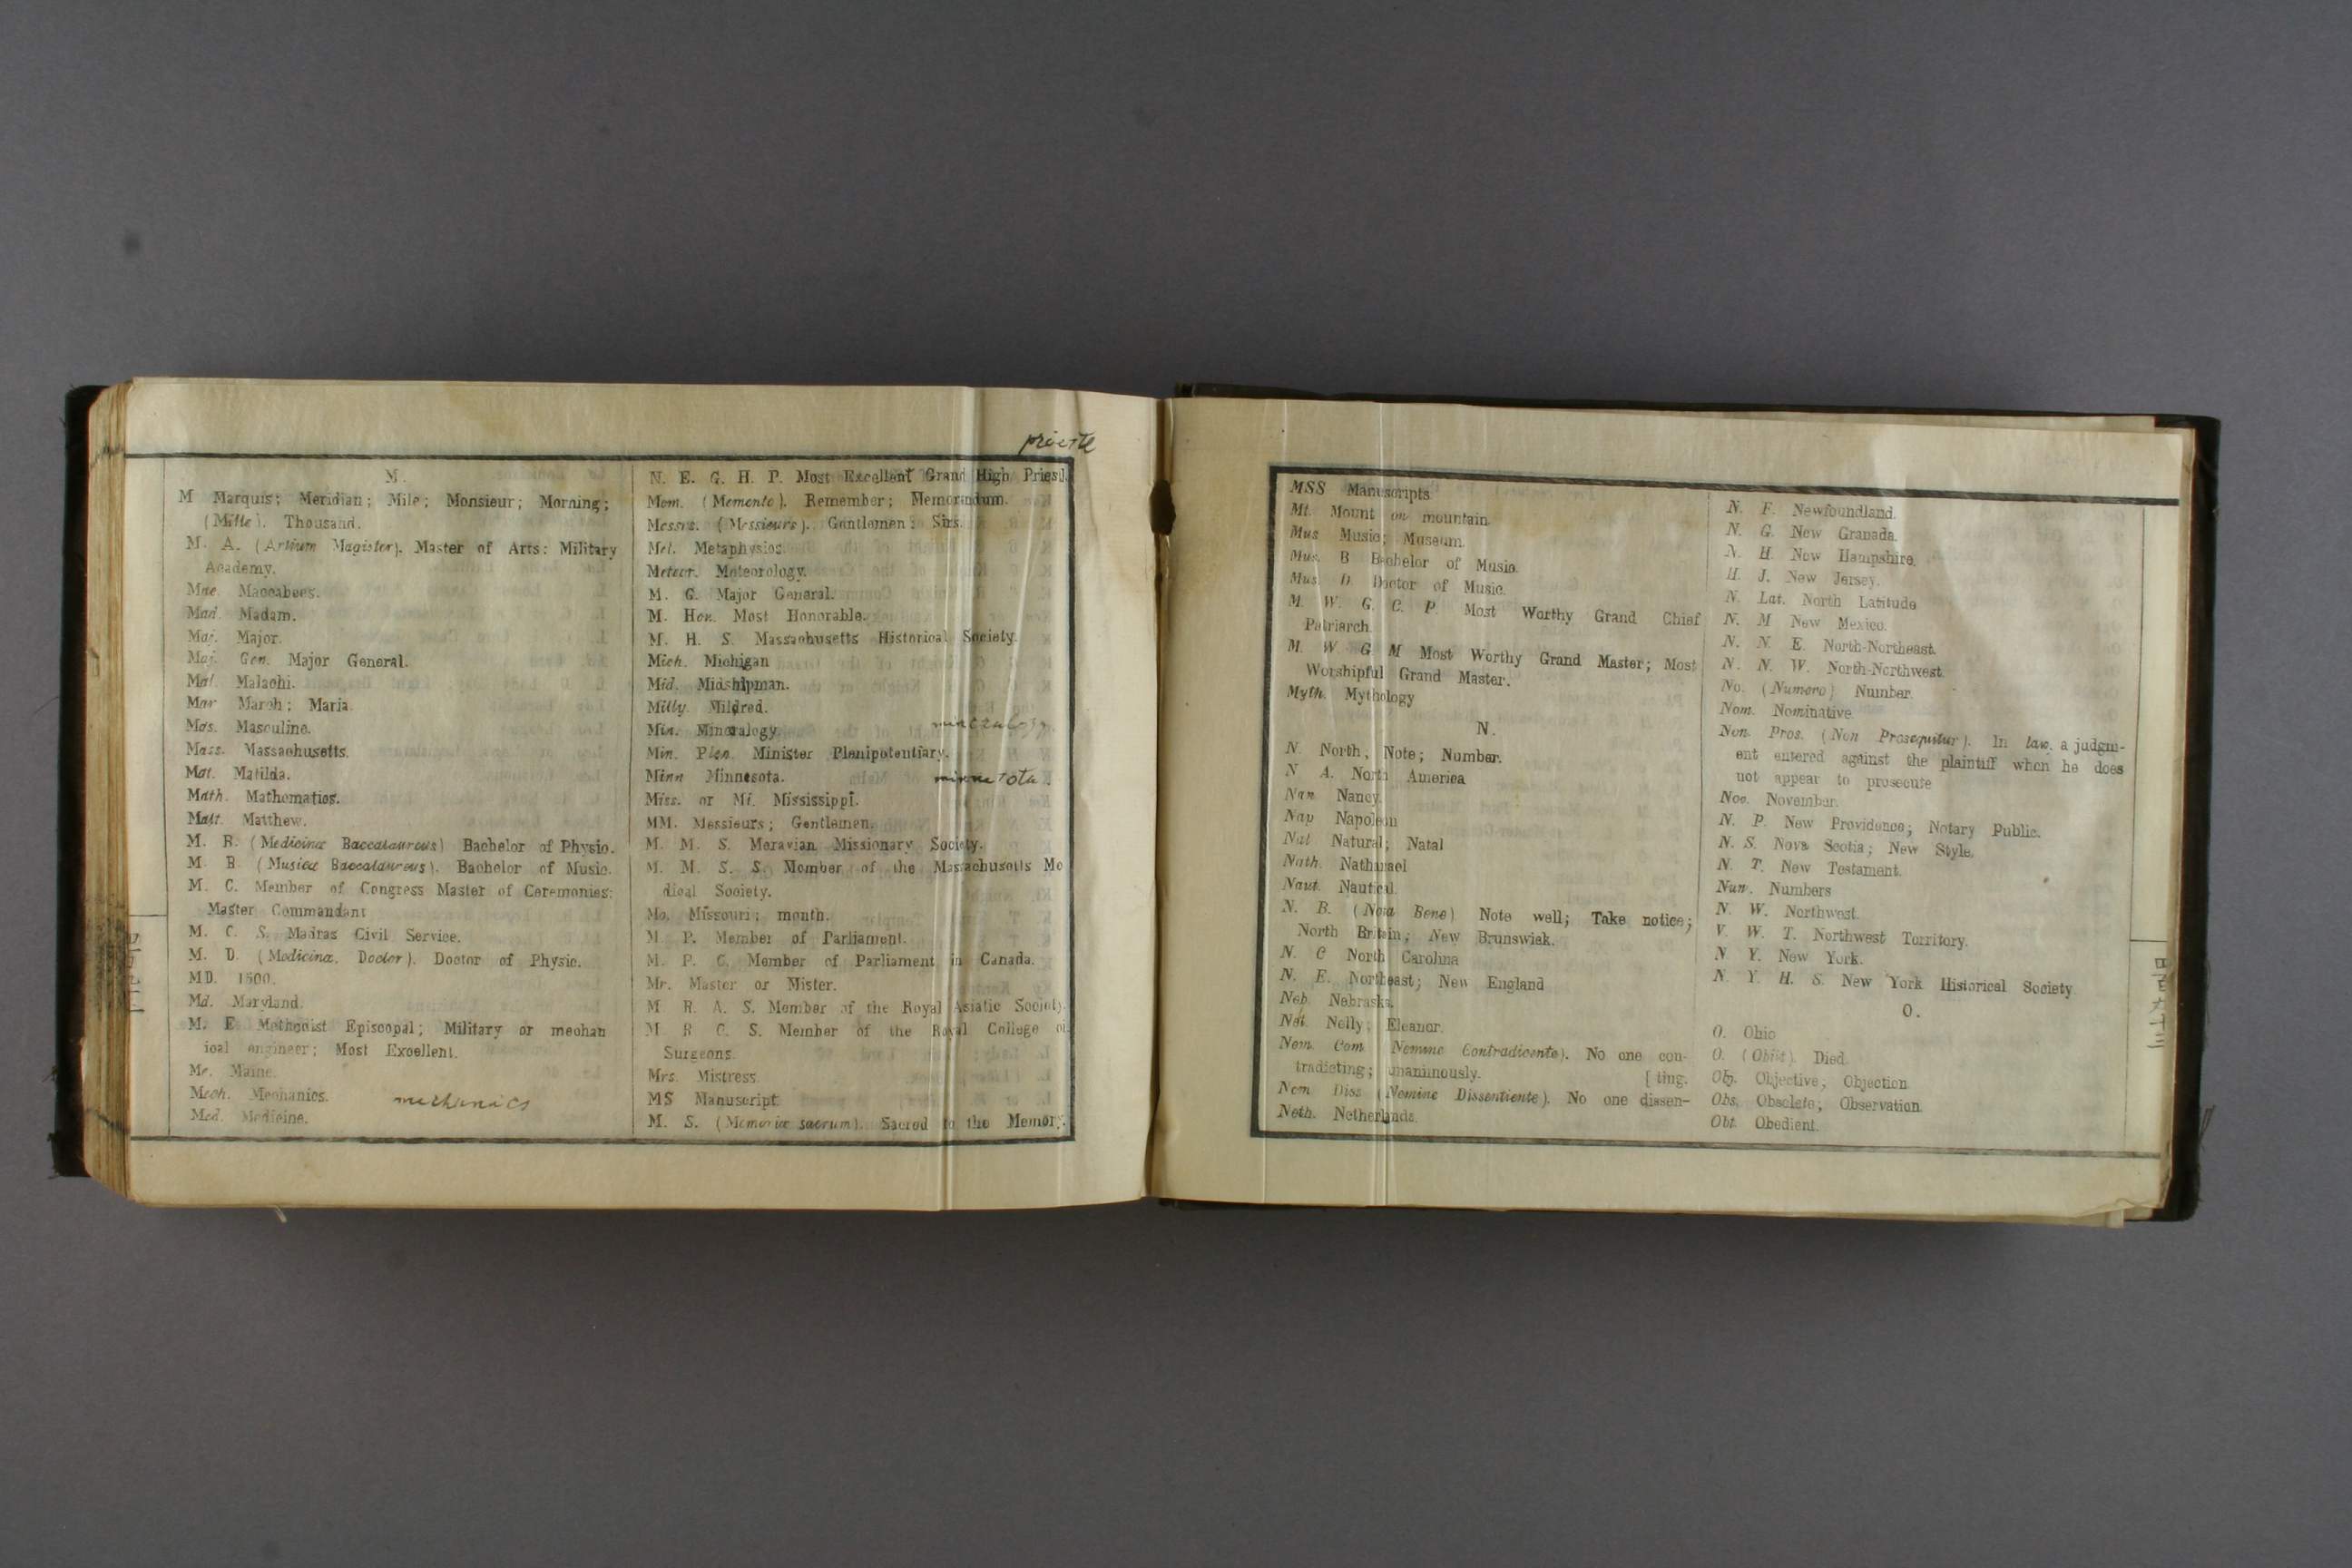 prieste
M.
M Marquis; Meridian; Mile; Monsieur; Morning;
(Mille). Thousand.
M. A. (Artium Magister). Master of Arts: Military
Academy.
Mac. Maccabees.
Mad. Madam.
Maj. Major.
Maj. Gen. Major General.
Mal. Malachi.
Mar March; Maria.
Mas. Masculine.
Mass. Massachusetts.
Mat. Matilda.
Math. Mathematics.
Matt. Matthew.
M. B. (Medicinæ Baccalaureus) Bachelor of Physic.
M. B. (Musicæ Baccalaureus). Bachelor of Music.
M. C. Member of Congress Master of Ceremonies;
Master Commandant
M. C. S. Madras Civil Service.
M. D. (Medicinæ. Doctor). Doctor of Physic.
MD. 1500.
Md. Maryland.
M. E. Methodist Episcopal; Military or mechan
ical engineer; Most Excellent.
Me. Maine.
Mech. Mechanics. mechanics
Med. Medicine.
N. E. G. H. P. Most Excellent Grand High Priest.
Mem. (Memento). Remember; Memorandum.
Messrs. (Messieurs). Gentlemen; Sirs.
Met. Metaphysics.
Meteor. Meteorology.
M. G. Major General.
M. Hon. Most Honorable.
M. H. S. Massachusetts Historical Society.
Mich. Michigan
Mid. Midshipman.
Milly. Mildred.
Min. Mineralogy.
Min. Plen. Minister Plenipotentiary.
Minn Minnesota. minnesota.
Miss. or Mi. Mississippi.
MM. Messieurs; Gentlemen.
M. M. S. Moravian Missionary Society.
M. M. S. S. Member of the Massachusetts Me
dical Society.
Mo. Missouri; month.
M P. Member of Parliament.
M. P. C. Member of Parliament in Canada.
Mr. Master or Mister.
M R. A. S. Member of the Royal Asiatic Society.
M R C. S. Member of the Royal College of
Surgeons.
Mrs. Mistress
MS Manuscript
M. S. (Memoriæ sacrum). Sacred to the Memory.
MSS Manuscripts
Mt. Mount on mountain.
Mus Music; Museum.
Mus. B Bachelor of Music.
Mus. D. Doctor of Music.
M. W. G. C. P. Most Worthy Grand Chief
Patriarch.
M. W G. M Most Worthy Grand Master; Most
Worshipful Grand Master.
Myth. Mythology
N.
N. North, Note; Number.
N A. North America
Nan Nancy.
Nap Napoleon
Nat Natural; Natal
Nath. Nathanael
Naut. Nautical.
N. B. (Nota Bene) Note well; Take notice;
North Britain; New Brunswick.
N. C North Carolina
N. E. Northeast; New England
Neb. Nebraska.
Nel. Nelly; Eleanor.
Nem. Com. Nemine Contradicente). No one con-
tradicting; unanimously. [ting.
Nem Diss (Nemine Dissentiente). No one dissen-
Neth. Netherlands.
N. F. Newfoundland.
N. G. New Granada.
N. H. New Hampshire.
H. J. New Jersey.
N. Lat. North Latitude
N. M New Mexico.
N. N. E. North-Northeast.
N. N. W. North-Northwest.
No. (Numero) Number.
Nom. Nominative.
Non. Pros. (Non Prosequitur). In law. a judgm-
ent entered against the plaintiff when he does
not appear to prosecute
Nov. November.
N. P. New Providence; Notary Public.
N. S. Nova Scotia; New Style.
N. T. New Testament.
Num. Numbers
N. W. Northwest.
V. W. T. Northwest Territory.
N Y. New York.
N. Y. H. S. New York Historical Society
O.
O. Ohio
O. (Obiit). Died.
Obj. Objective; Objection
Obs. Obsolete; Observation.
Obt. Obedient.